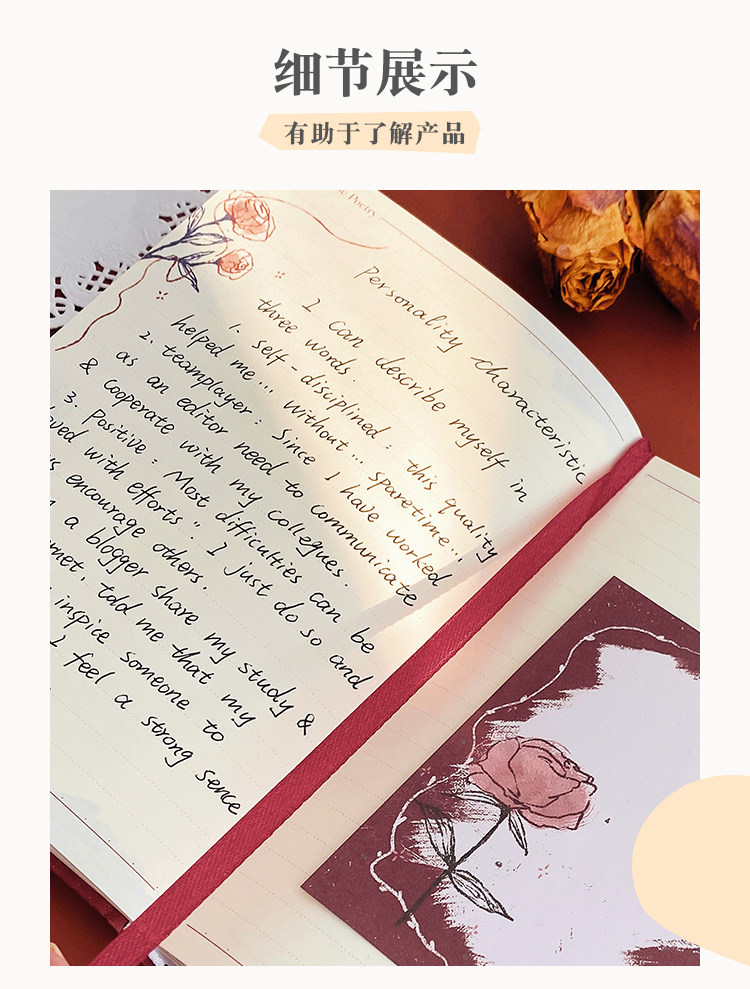 细节展示
有助于了解产品
Poetry
Personality characteristic
I can describe myself in
three words.
1. self-disciplined: this quality
helped me... without... sparetime...
2. teamplayer: Since I have worked
as an editor need to communicate
& cooperate with my collegues.
3. Positive: Most difficulties can be
with efforts". I just do so and
encourage others.
a blogger share my study &
told me that my
inspice someone to
I feel a strong sence